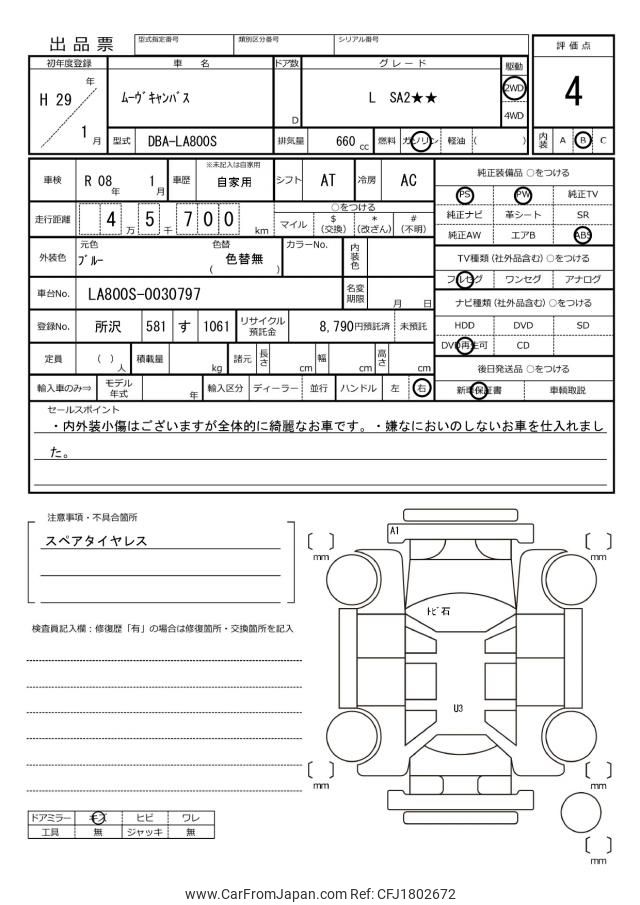 出品票 型式指定番号 類別区分番号 シリアル番号 評価点
初年度登録 車名 ドア数 グレード 駆動
H 29 年 ムーヴキャンバス L SA2★★ 2WD 4
1 月 D 4WD
型式 DBA-LA800S 排気量 660 cc 燃料 ガソリン 軽油 ( ) 内装 A B C
車検 R 08 年 1 月 車歴 ※未記入は自家用 自家用 シフト AT 冷房 AC 純正装備品 ○をつける
PS PW 純正TV
走行距離 4 万 5 千 7 0 0 km ○をつける
マイル $ (交換) * (改ざん) # (不明) 純正ナビ 革シート SR
純正AW エアB ABS
外装色 元色 ブルー 色替 ( 色替無 ) カラーNo. 内装色 TV種類 (社外品含む) ○をつける
フルセグ ワンセグ アナログ
車台No. LA800S-0030797 名変期限 月 日 ナビ種類 (社外品含む) ○をつける
登録No. 所沢 581 す 1061 リサイクル預託金 8,790円預託済 未預託 HDD DVD SD
DVD再生可 CD
定員 ( ) 人 積載量 kg 諸元 長さ cm 幅 cm 高さ cm 後日発送品 ○をつける
輸入車のみ⇒ モデル年式 年 輸入区分 ディーラー 並行 ハンドル 左 右 新車保証書 車輌取説
セールスポイント
・内外装小傷はございますが全体的に綺麗なお車です。・嫌なにおいのしないお車を仕入れまし
た。
注意事項・不具合箇所
スペアタイヤレス
検査員記入欄：修復歴「有」の場合は修復箇所・交換箇所を記入
A1
mm
mm
トビ石
U3
mm
mm
mm
ドアミラー キズ ヒビ ワレ
工具 無 ジャッキ 無
www.CarFromJapan.com Ref: CFJ1802672